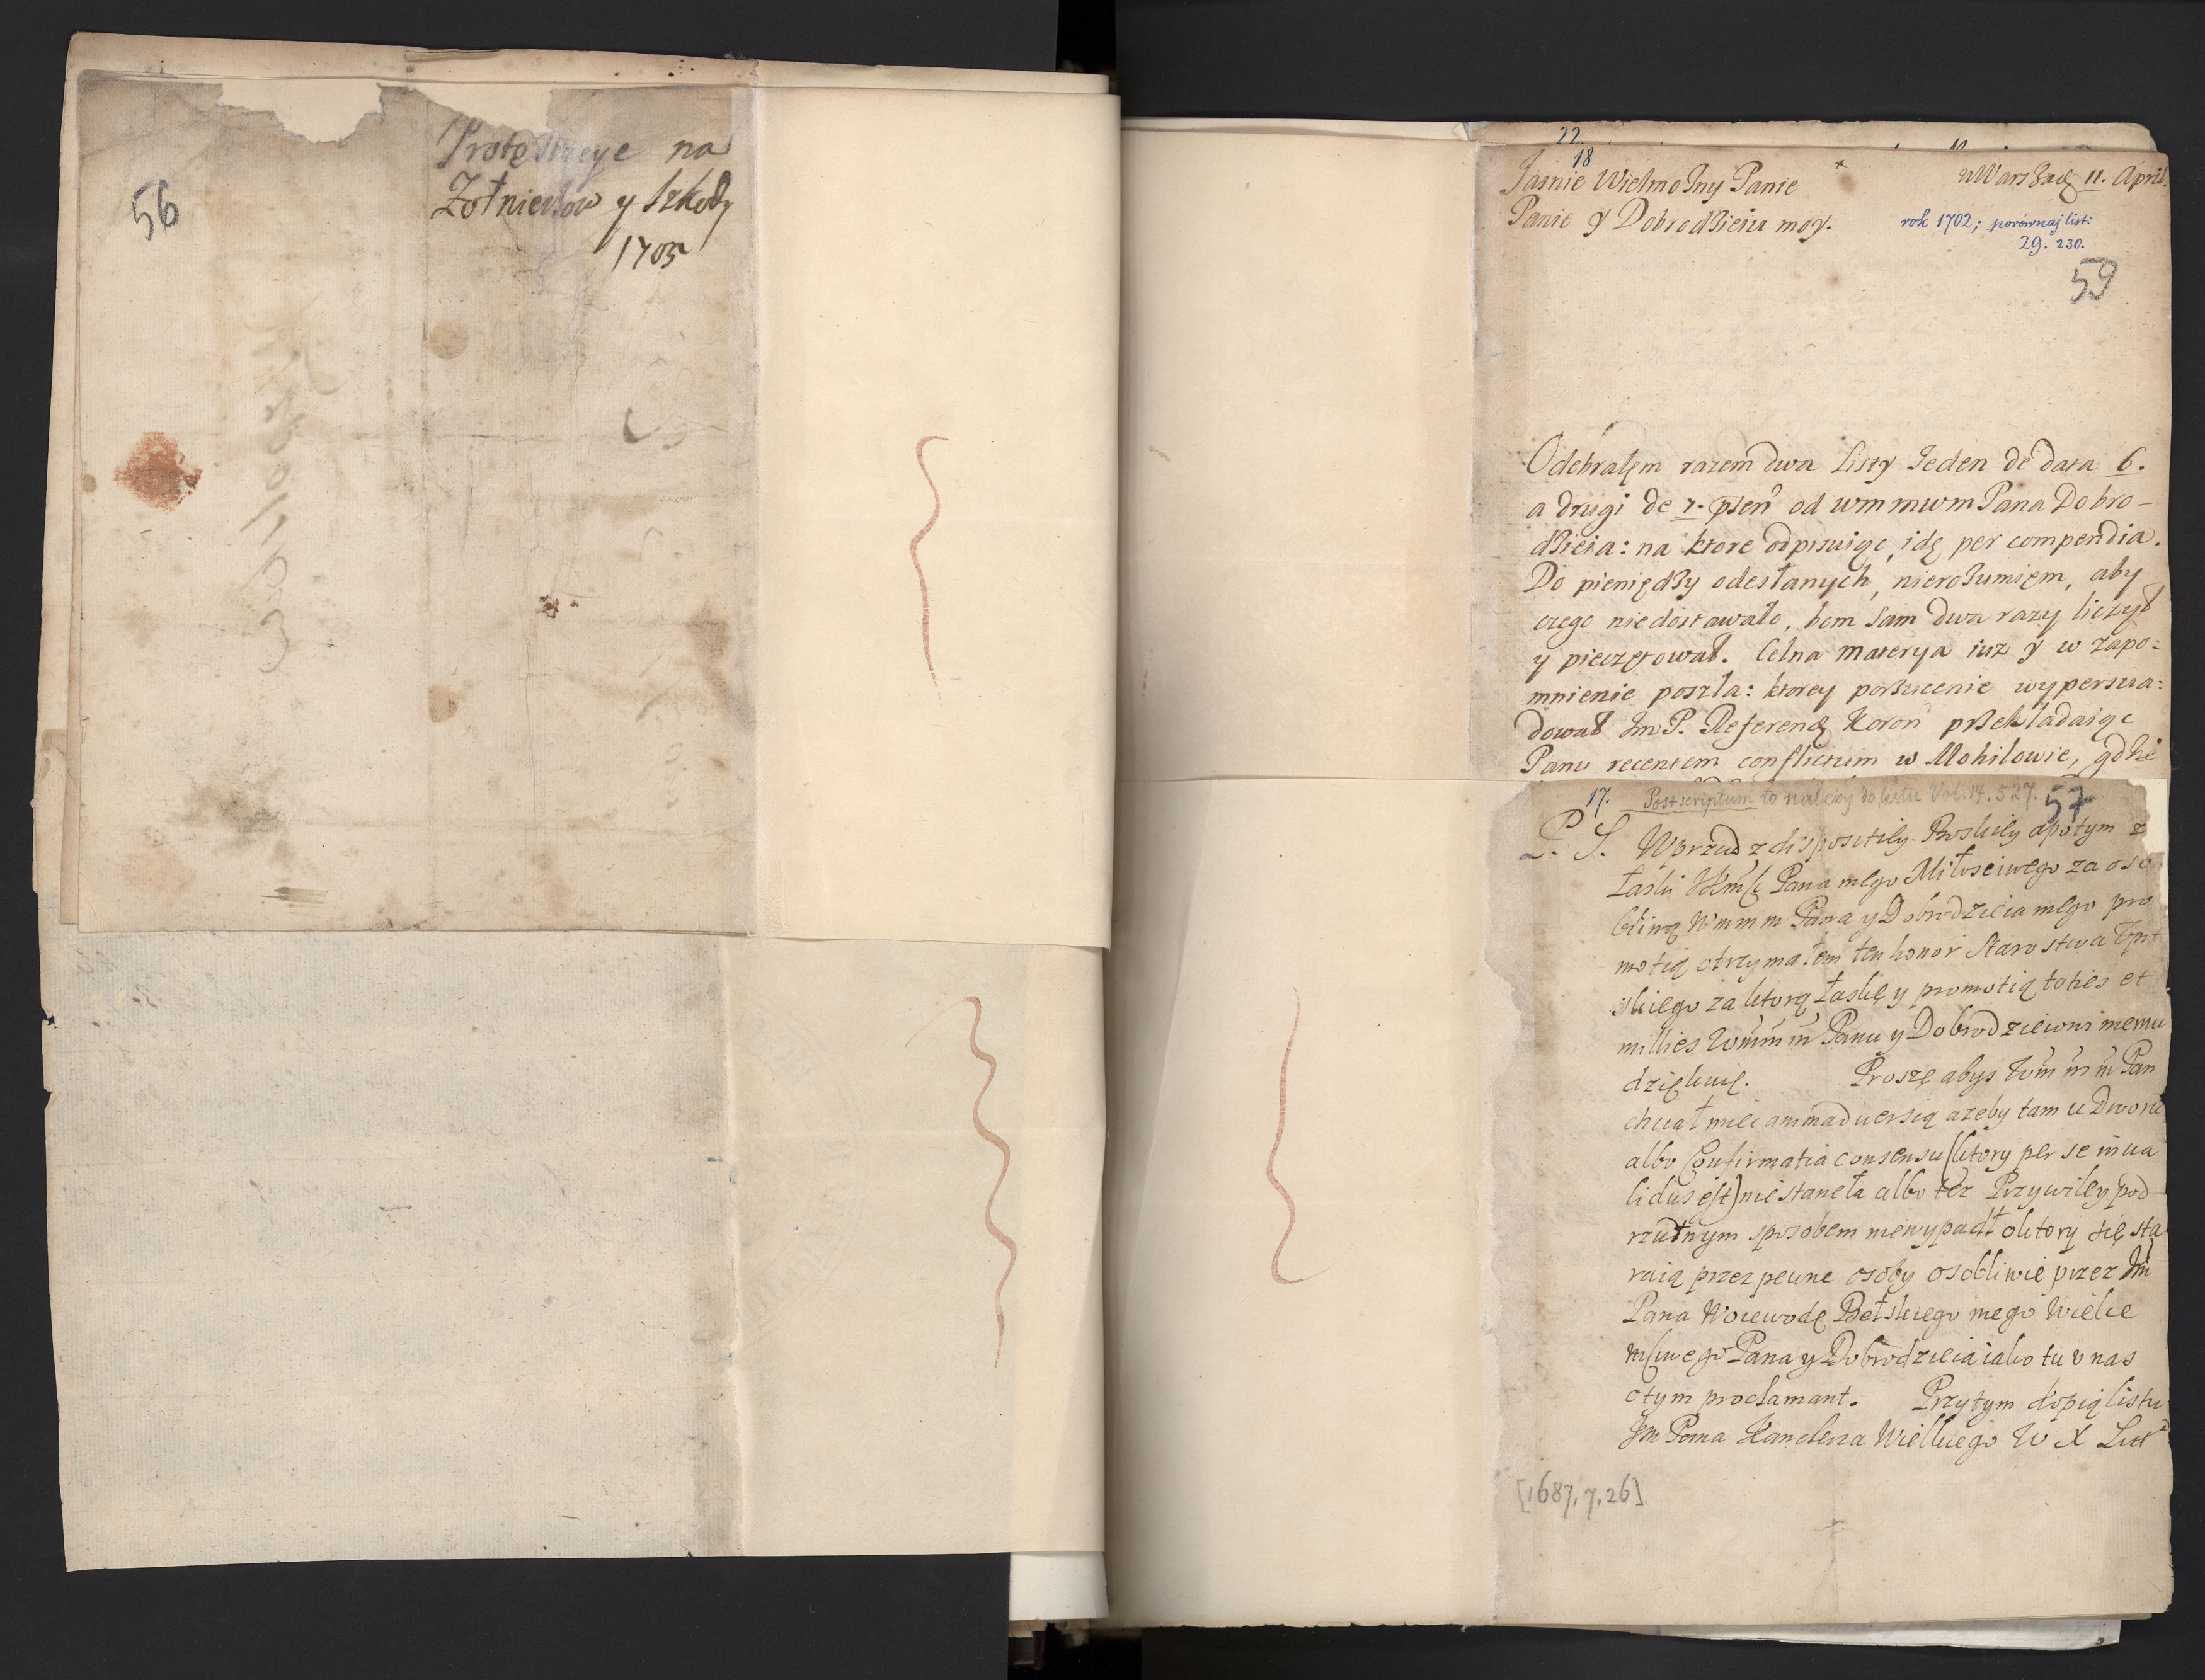 56
Protestacye na
Zołnierzow y Szkody
1705
22.
18
Jasnie Wielmożny Panie
w Warszaẽ 11. April.
Panie y Dobrodzieiu moy.
rok 1702; porównaj list:
29. 230.
59
Odebrałęm razem dwa Listy Jeden de data 6.
a drugi de 7. od wm mwm Pana Dobro-
dzieia: na ktore odpisuiąc, idę per compendia.
Do pieniędzy odesłanych, nierozumięm, aby
czego niedostawało, bom sam dwa razy liczył
y pieczętował. Celna materya iuz y w zapo=
mnienie poszła: ktorey porzucenie wypersua=
dował Jm P. Referenď Koroñ przekładaiąc
Panu recentem conflictum w Mohilowie, gdzie
17. Postscriptum to należy do listu Vol. 14. 527.
57
P. S. Wprzud z dispositiey Boskiey apotym z
łaski Pana mego Miłosciwego za oso
bliwą Wmmm Pana y Dobrodzieia mego pro
motią otrzymałem ten honor Starostwa
skiego za ktorą łaskę y promotią toties et
millies Wmmm Panu y Dobrodzieiowi memu
dziękuię. Proszę abys Wm m m Pan
chciał miec animaduersią azeby tam u Dworu
albo Confirmatia consensu (ktory per se inua
lidus est) niestaneła albo tez Przywiley pod
rzutnym sposobem niewypadł oktory się sta
raią przez pewne osoby osobliwie przez Jm
Pana Woiewodę Bełskiego mego Wielce
Młśwego Pana y Dobrodzieia iako tu v nas
otym proclamant. Przytym kopią listu
Jm Pana Kanclerza Wielkiego W X Litt
[1687, 7, 26]